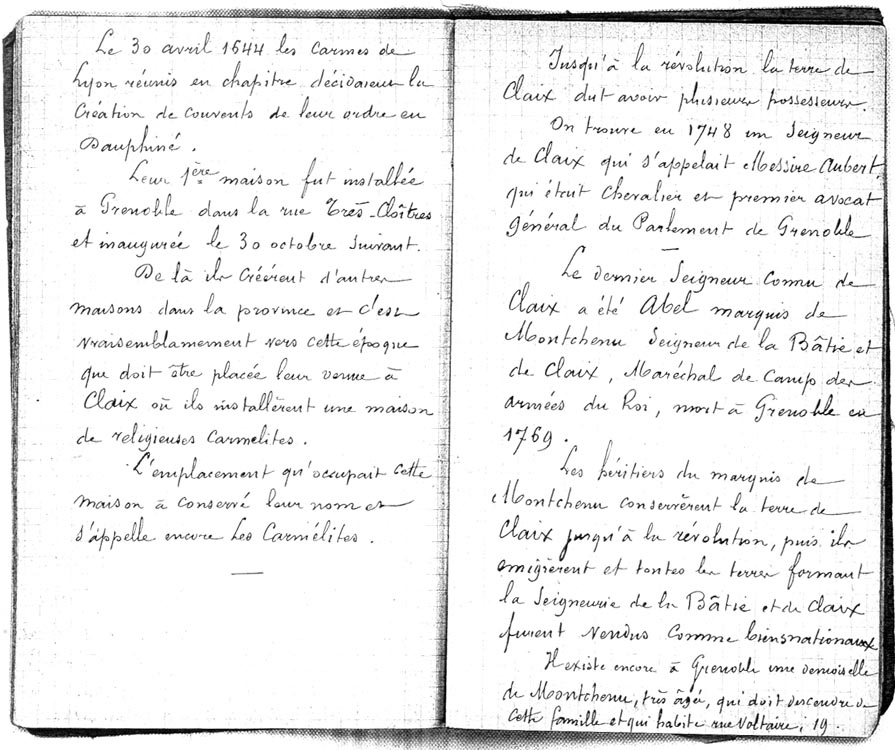 Le 30 avril 1644 les Carmes de
Lyon réunis en chapitre décidaient la
Création de couvents de leur ordre en
Dauphiné.
Leur 1ère maison fut installée
à Grenoble dans la rue Très-Cloîtres
et inaugurée le 30 octobre suivant.
De là ils créèrent d'autres
maisons dans la province et c'est
vraisemblamement vers cette époque
que doit être placée leur venue à
Claix où ils installèrent une maison
de religieuses Carmelites.
L'emplacement qu'occupait cette
maison à conservé leur nom et
s'appelle encore Les Carmélites.
Jusqu'à la révolution la terre de
Claix dut avoir plusieurs possesseurs.
On trouve en 1748 un Seigneur
de Claix qui s'appelait Messire Aubert,
qui était Chevalier et premier avocat
général du Parlement de Grenoble
Le dernier Seigneur connu de
Claix a été Abel marquis de
Montchenu Seigneur de la Bâtie et
de Claix, Maréchal de Camp des
armées du Roi, mort à Grenoble en
1769.
Les héritiers du marquis de
Montchenu conservèrent la terre de
Claix jusqu'à la révolution, puis ils
emigrèrent et toutes les terres formant
la Seigneurie de la Bâtie et de Claix
furent vendus comme biens nationaux
Il existe encore à Grenoble une demoiselle
de Montchenu, très âgée, qui doit descendre de
cette famille et qui habite rue Voltaire, 19.